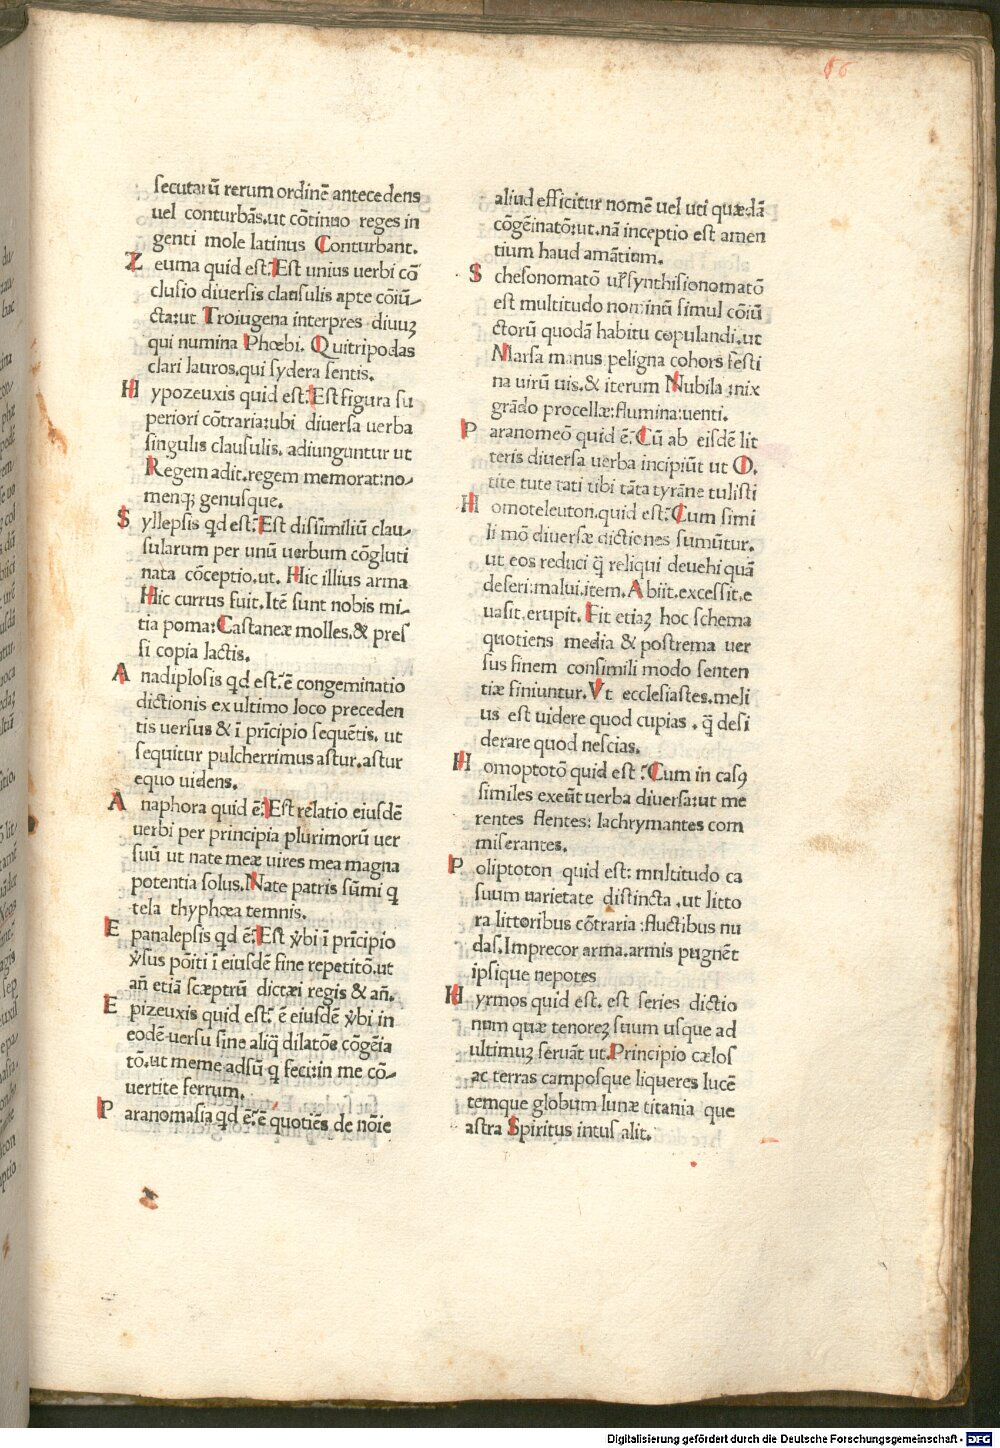 66
secutarū rerum ordinē antecedens
uel conturbās.ut cōtinuo reges in
genti mole latinus Conturbant.
Zeuma quid est? Est unius uerbi cō
clusio diuersis clausulis apte cōiū-
cta:ut Troiugena interpres diuuꝫ
qui numina Phœbi. Qui tripodas
clari lauros.qui sydera sentis.
Hypozeuxis quid est? Est figura su
periori cōtraria:ubi diuersa uerba
singulis clausulis. adiunguntur ut
Regem adit.regem memorat:no-
menqꝫ genusque.
Syllepsis qd est? Est disūmiliū clau-
sularum per unū uerbum cōgluti
nata cōceptio.ut. Hic illius arma
Hic currus fuit. Itē sunt nobis mi-
tia poma: Castaneæ molles.& pres
si copia lactis.
Anadiplosis qd est? ē congeminatio
dictionis ex ultimo loco preceden
tis uersus & ī prīcipio sequētis. ut
sequitur pulcherrimus astur.astur
equo uidens.
Anaphora quid ē? Est relatio eiusdē
uerbi per principia plurimorū uer
suū ut nate meæ uires mea magna
potentia solus. Nate patris sūmi q
tela thyphœa temnis.
Epanalepsis qd ē? Est ỽbi ī prīcipio
ỽsus pōiti ī eiusdē fine repetitō.ut
añ etiā scæptrū dictæi regis & añ.
Epizeuxis quid est? ē eiusdē ỽbi in
eodē uersu sine aliq̄ dilatōe cōgēia
tō.ut meme adsū q feci:in me cō-
uertite ferrum.
Paranomasia qd ē? ē quotiēs de nōie
aliud efficitur nomē uel uti quædā
cōgēinatō:ut.nā inceptio est amen
tium haud amātium.
Schesonomatō uꝉ synthisionomatō
est multitudo nominū simul cōiū
ctorū quodā habitu copulandi.ut
Marsa manus peligna cohors festi
na uirū uis.& iterum Nubila :nix
grādo procellæ:flumina:uenti.
Paranomeō quid ē? Cū ab eisdē lit
teris diuersa uerba incipiūt ut O.
tite tute tati tibi tāta tyrāne tulisti
Homoteleuton.quid est? Cum simi
li mō diuersæ dictiones sumūtur.
ut eos reduci q̄ reliqui deuehi quā
deseri:malui.item. Abiit.excessit.e
uasit.erupit. Fit etiaꝫ hoc schema
quotiens media & postrema uer
sus finem consimili modo senten
tiæ finiuntur. Vt ecclesiastes.meli
us est uidere quod cupias . q̄ desi
derare quod nescias.
Homoptotō quid est ? Cum in casꝯ
similes exeūt uerba diuersa:ut me
rentes flentes: lachrymantes com
miserantes.
Poliptoton quid est: multitudo ca
suum uarietate distincta .ut litto
ra littoribus cōtraria :fluctibus nu
das. Imprecor arma.armis pugnēt
ipsique nepotes
Hyrmos quid est. est series dictio
num quæ tenoreꝫ suum usque ad
ultimuꝫ seruāt ut. Principio cælos
ac terras camposque liqueres lucē
temque globum lunæ titania que
astra Spiritus intus alit.
Digitalisierung gefördert durch die Deutsche Forschungsgemeinschaft - DFG